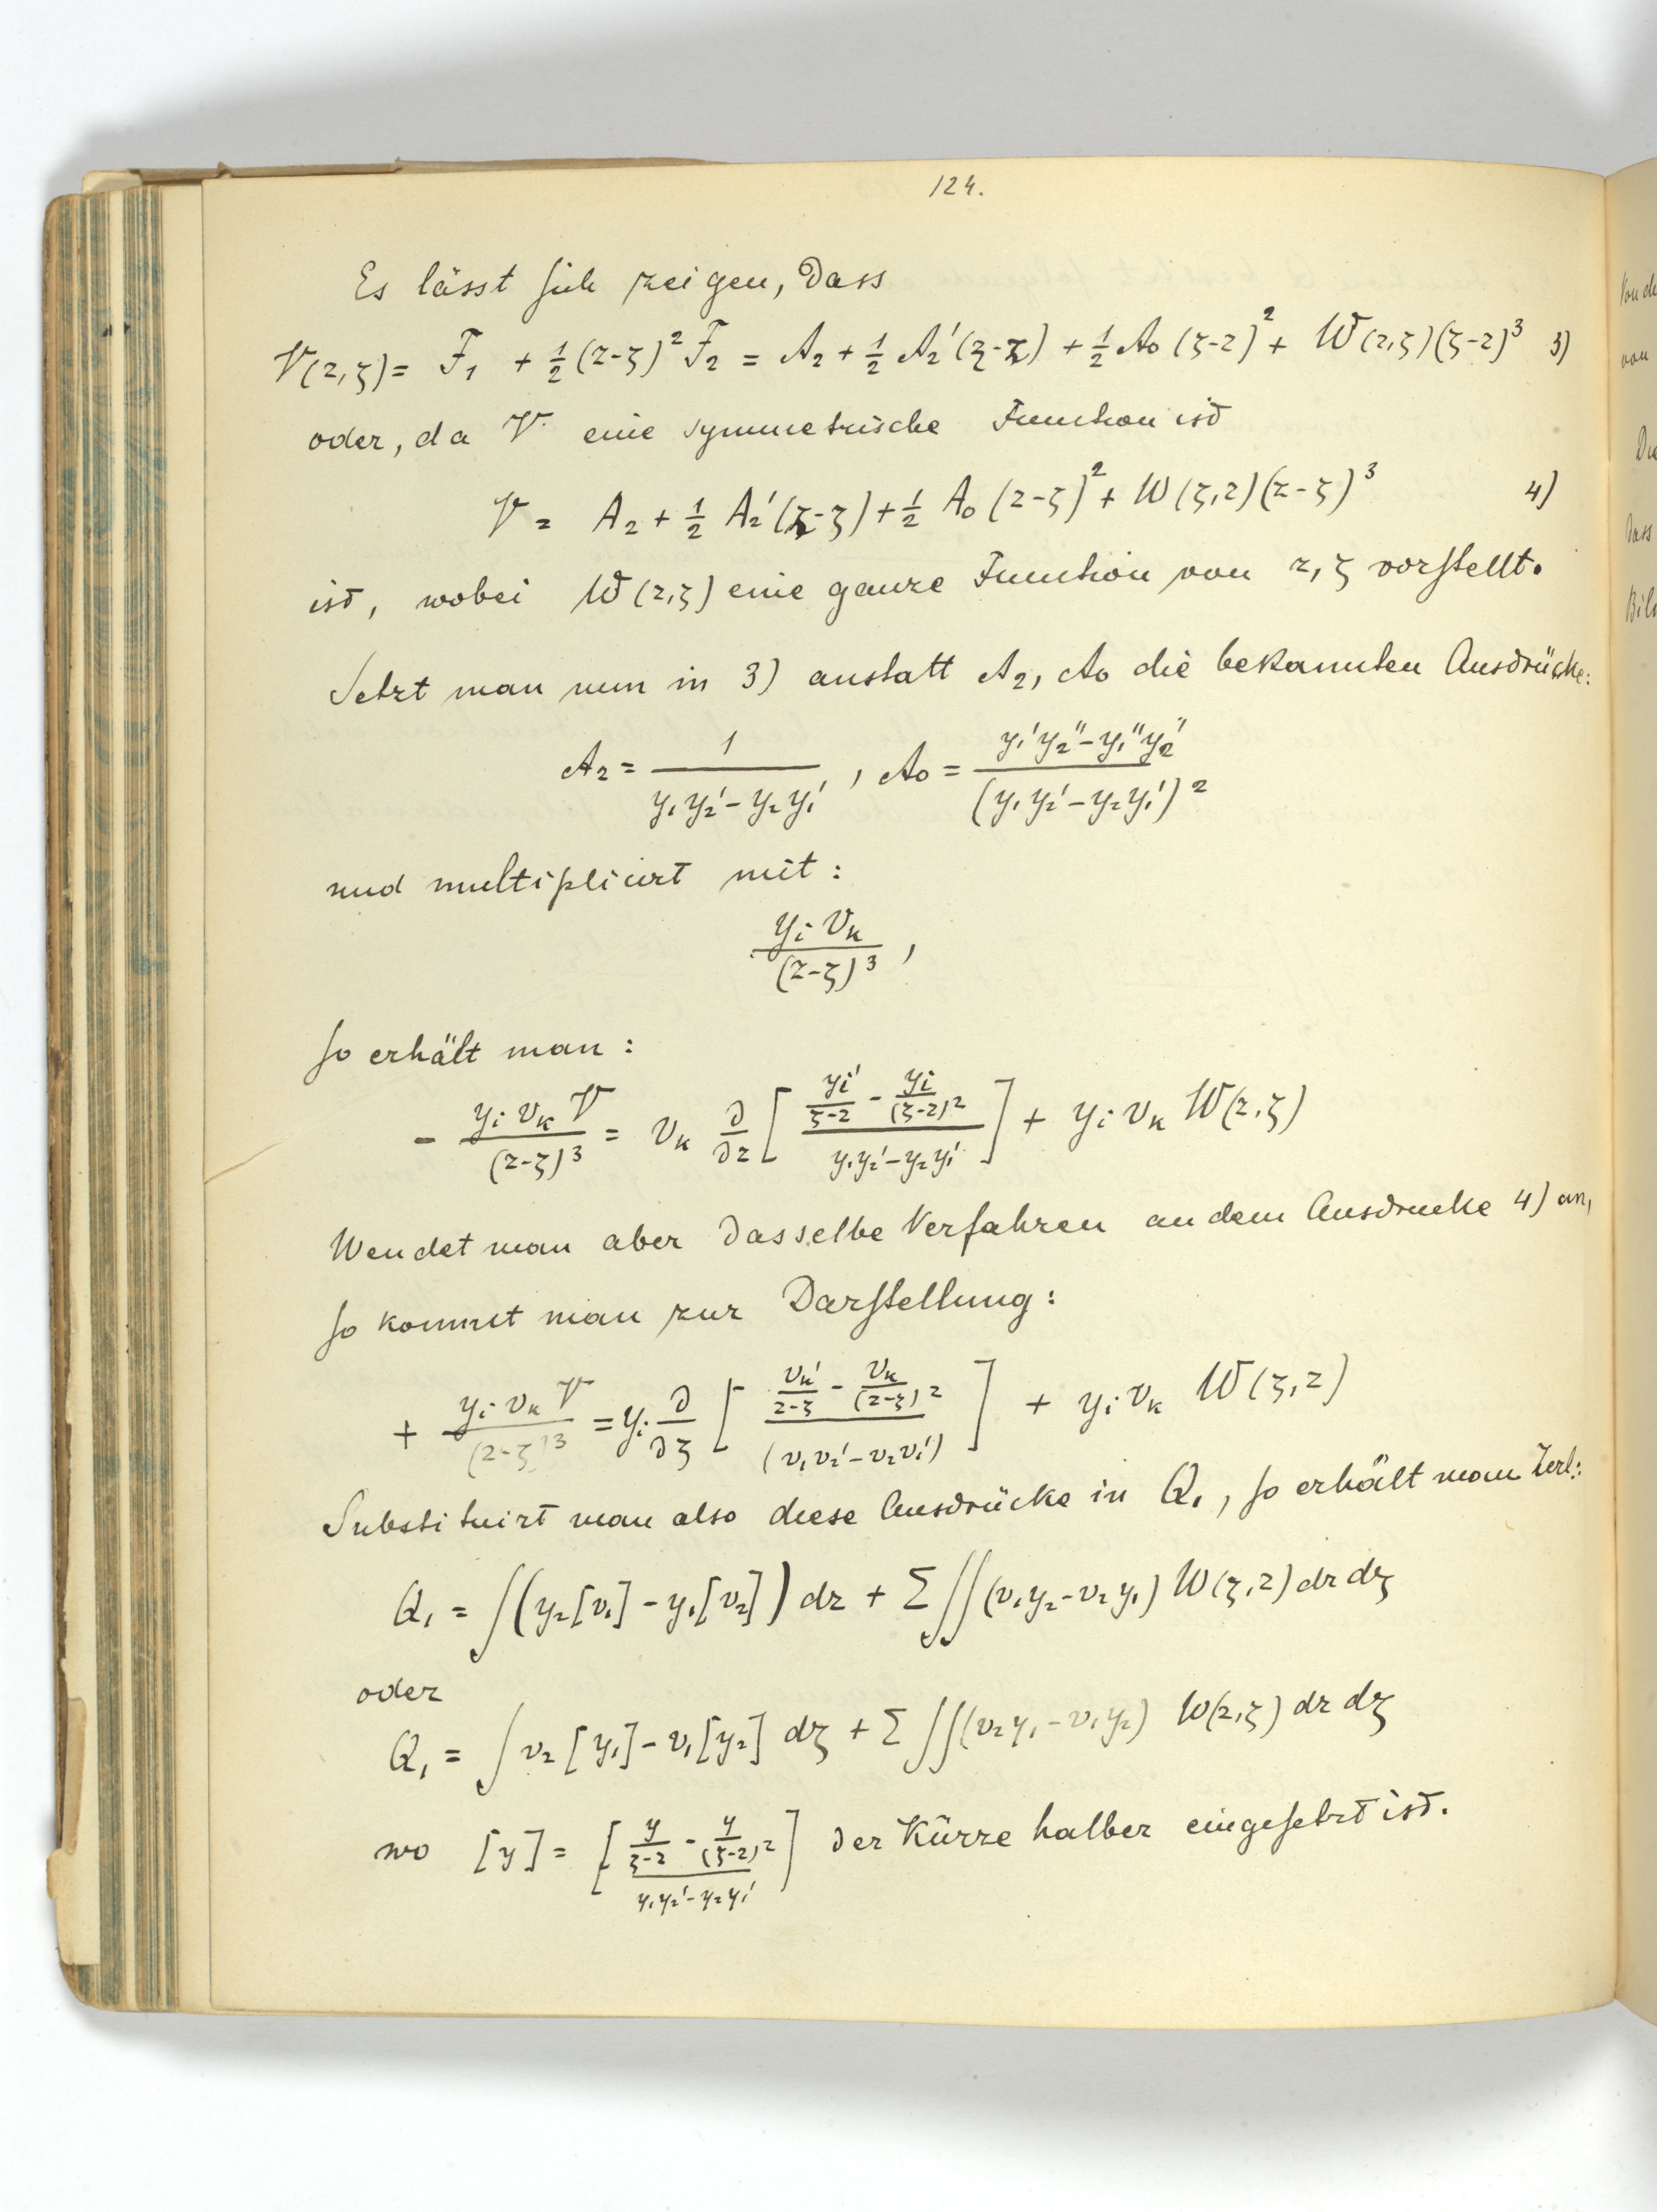 124.
Es lässt sich zeigen, dass
V(z,ζ) = F₁ + ½(z-ζ)² F₂ = A₂ + ½ A₂'(ζ-z) + ½ A₀ (ζ-z)² + W(z,ζ)(ζ-z)³ 3)
oder, da V eine symmetrische Function ist
V = A₂ + ½ A₂'(z-ζ) + ½ A₀ (z-ζ)² + W(ζ,z)(z-ζ)³ 4)
ist, wobei W(z,ζ) eine ganze Function von z, ζ vorstellt.
Setzt man nun in 3) anstatt A₂, A₀ die bekannten Ausdrücke:
A₂ = 1/(y₁y₂' - y₂y₁'), A₀ = (y₁'y₂'' - y₁''y₂')/(y₁y₂' - y₂y₁')²
und multiplicirt mit:
yᵢ vₖ/(z-ζ)³,
so erhält man:
- yᵢ vₖ V/(z-ζ)³ = vₖ ∂/∂z [(yᵢ'/(ζ-z) - yᵢ/(ζ-z)²)/(y₁y₂' - y₂y₁')] + yᵢ vₖ W(z,ζ)
Wendet man aber dasselbe Verfahren an dem Ausdrucke 4) an,
so kommt man zur Darstellung:
+ yᵢ vₖ V/(z-ζ)³ = yᵢ ∂/∂ζ [(vₖ'/(z-ζ) - vₖ/(z-ζ)²)/(v₁v₂' - v₂v₁')] + yᵢ vₖ W(ζ,z)
Substituirt man also diese Ausdrücke in Q₁, so erhält man
Q₁ = ∫(y₂[v₁] - y₁[v₂]) dz + Σ∬(v₁y₂ - v₂y₁) W(ζ,z) dz dζ
oder
Q₁ = ∫ v₂[y₁] - v₁[y₂] dζ + Σ∬(v₂y₁ - v₁y₂) W(z,ζ) dz dζ
wo [y] = [(y/(ζ-z) - y/(ζ-z)²)/(y₁y₂' - y₂y₁')] der Kürze halber eingesetzt ist.